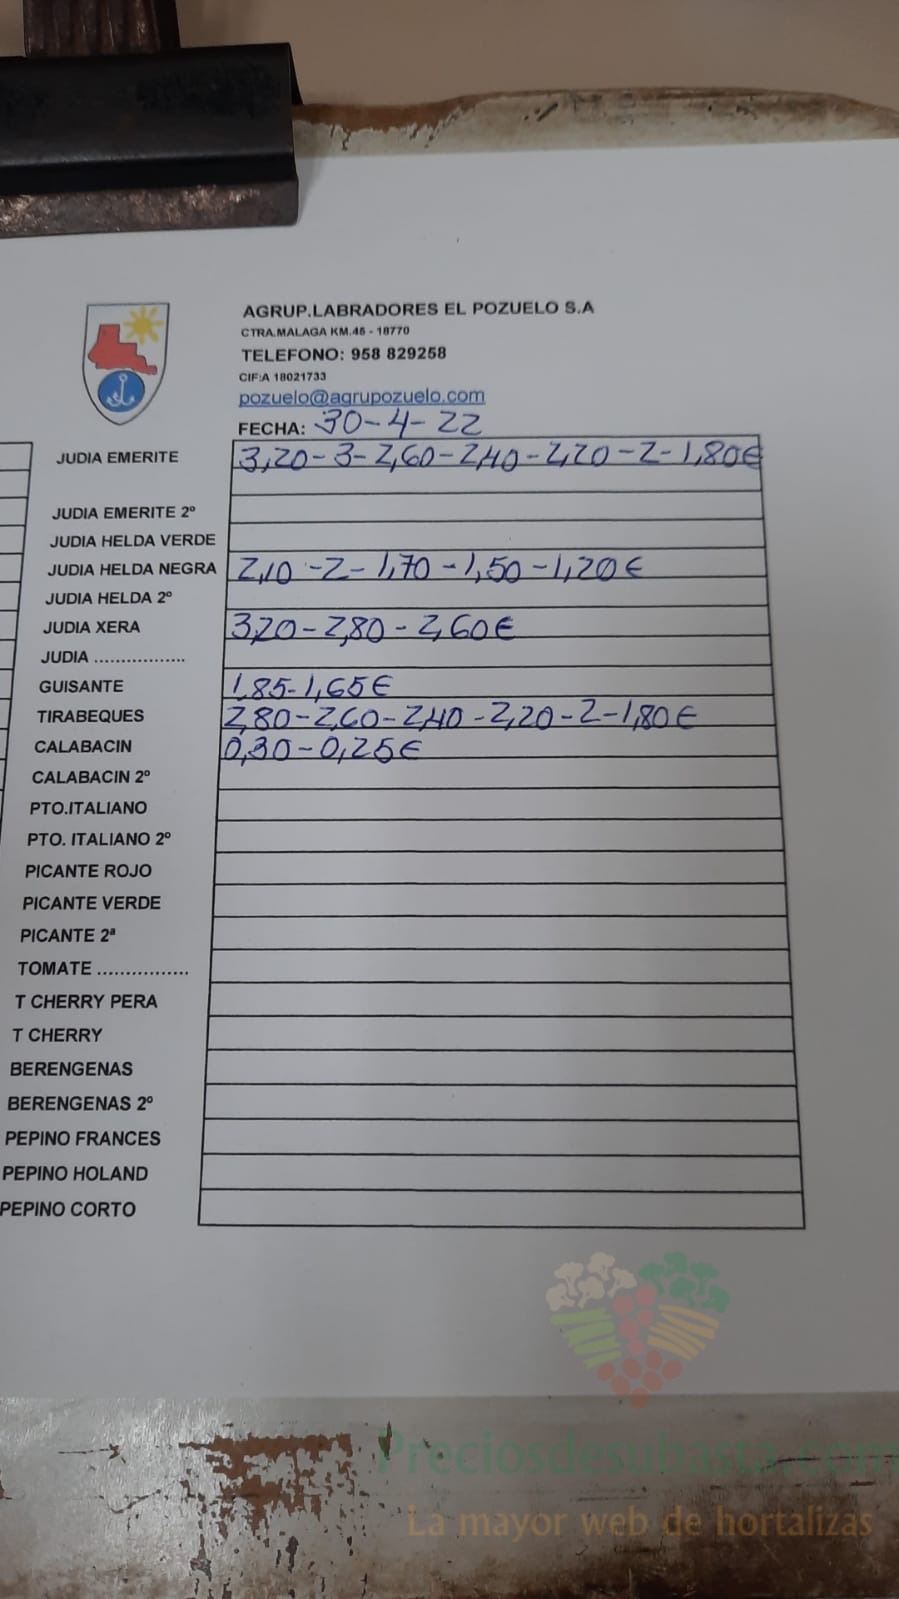 AGRUP.LABRADORES EL POZUELO S.A
CTRA.MALAGA KM.46 - 18770
TELEFONO: 958 829258
CIF:A 18021733
pozuelo@agrupozuelo.com
FECHA: 30-4-22
JUDIA EMERITE 3,20-3-2,60-2,40-2,20-2-1,80€
JUDIA EMERITE 2º
JUDIA HELDA VERDE
JUDIA HELDA NEGRA 2,10-2-1,70-1,50-1,20€
JUDIA HELDA 2º
JUDIA XERA 3,20-2,80-2,60€
JUDIA .................
GUISANTE 1,85-1,65€
TIRABEQUES 2,80-2,60-2,40-2,20-2-1,80€
CALABACIN 0,30-0,25€
CALABACIN 2º
PTO.ITALIANO
PTO. ITALIANO 2º
PICANTE ROJO
PICANTE VERDE
PICANTE 2ª
TOMATE ................
T CHERRY PERA
T CHERRY
BERENGENAS
BERENGENAS 2º
PEPINO FRANCES
PEPINO HOLAND
PEPINO CORTO
Preciosdesubasta.com
La mayor web de hortalizas